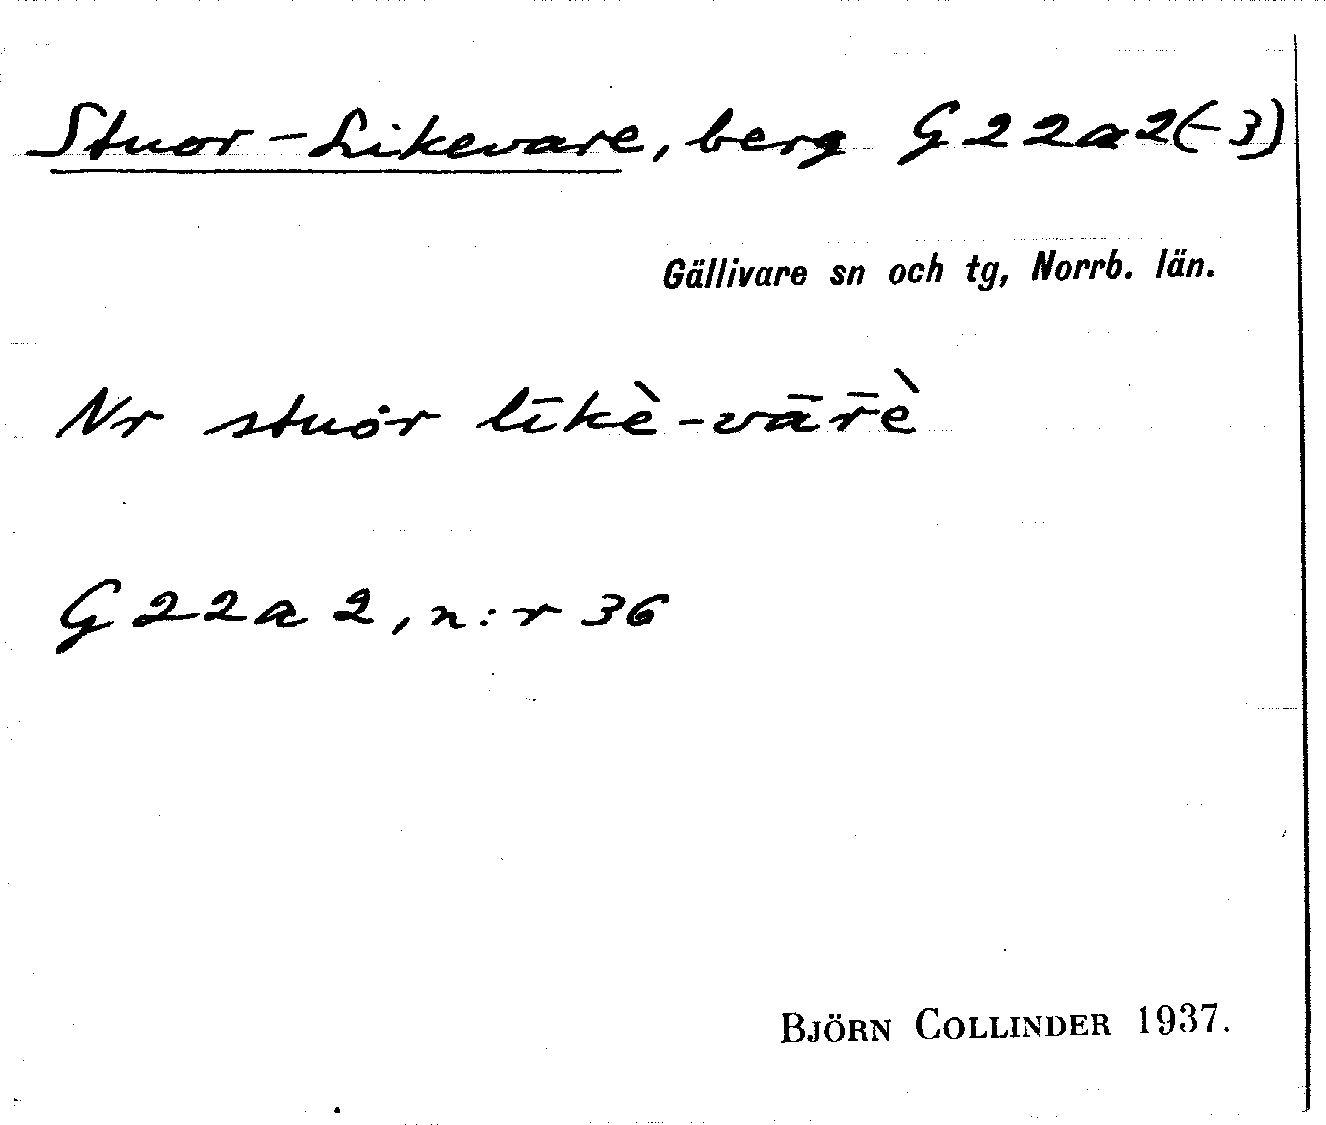 Stuor-Likevare, berg G 22a2(-3)
Gällivare sn och tg, Norrb. län.
Nr stuȯr līkè-vār̄è
G 22a 2, n:r 36
BJÖRN COLLINDER 1937.